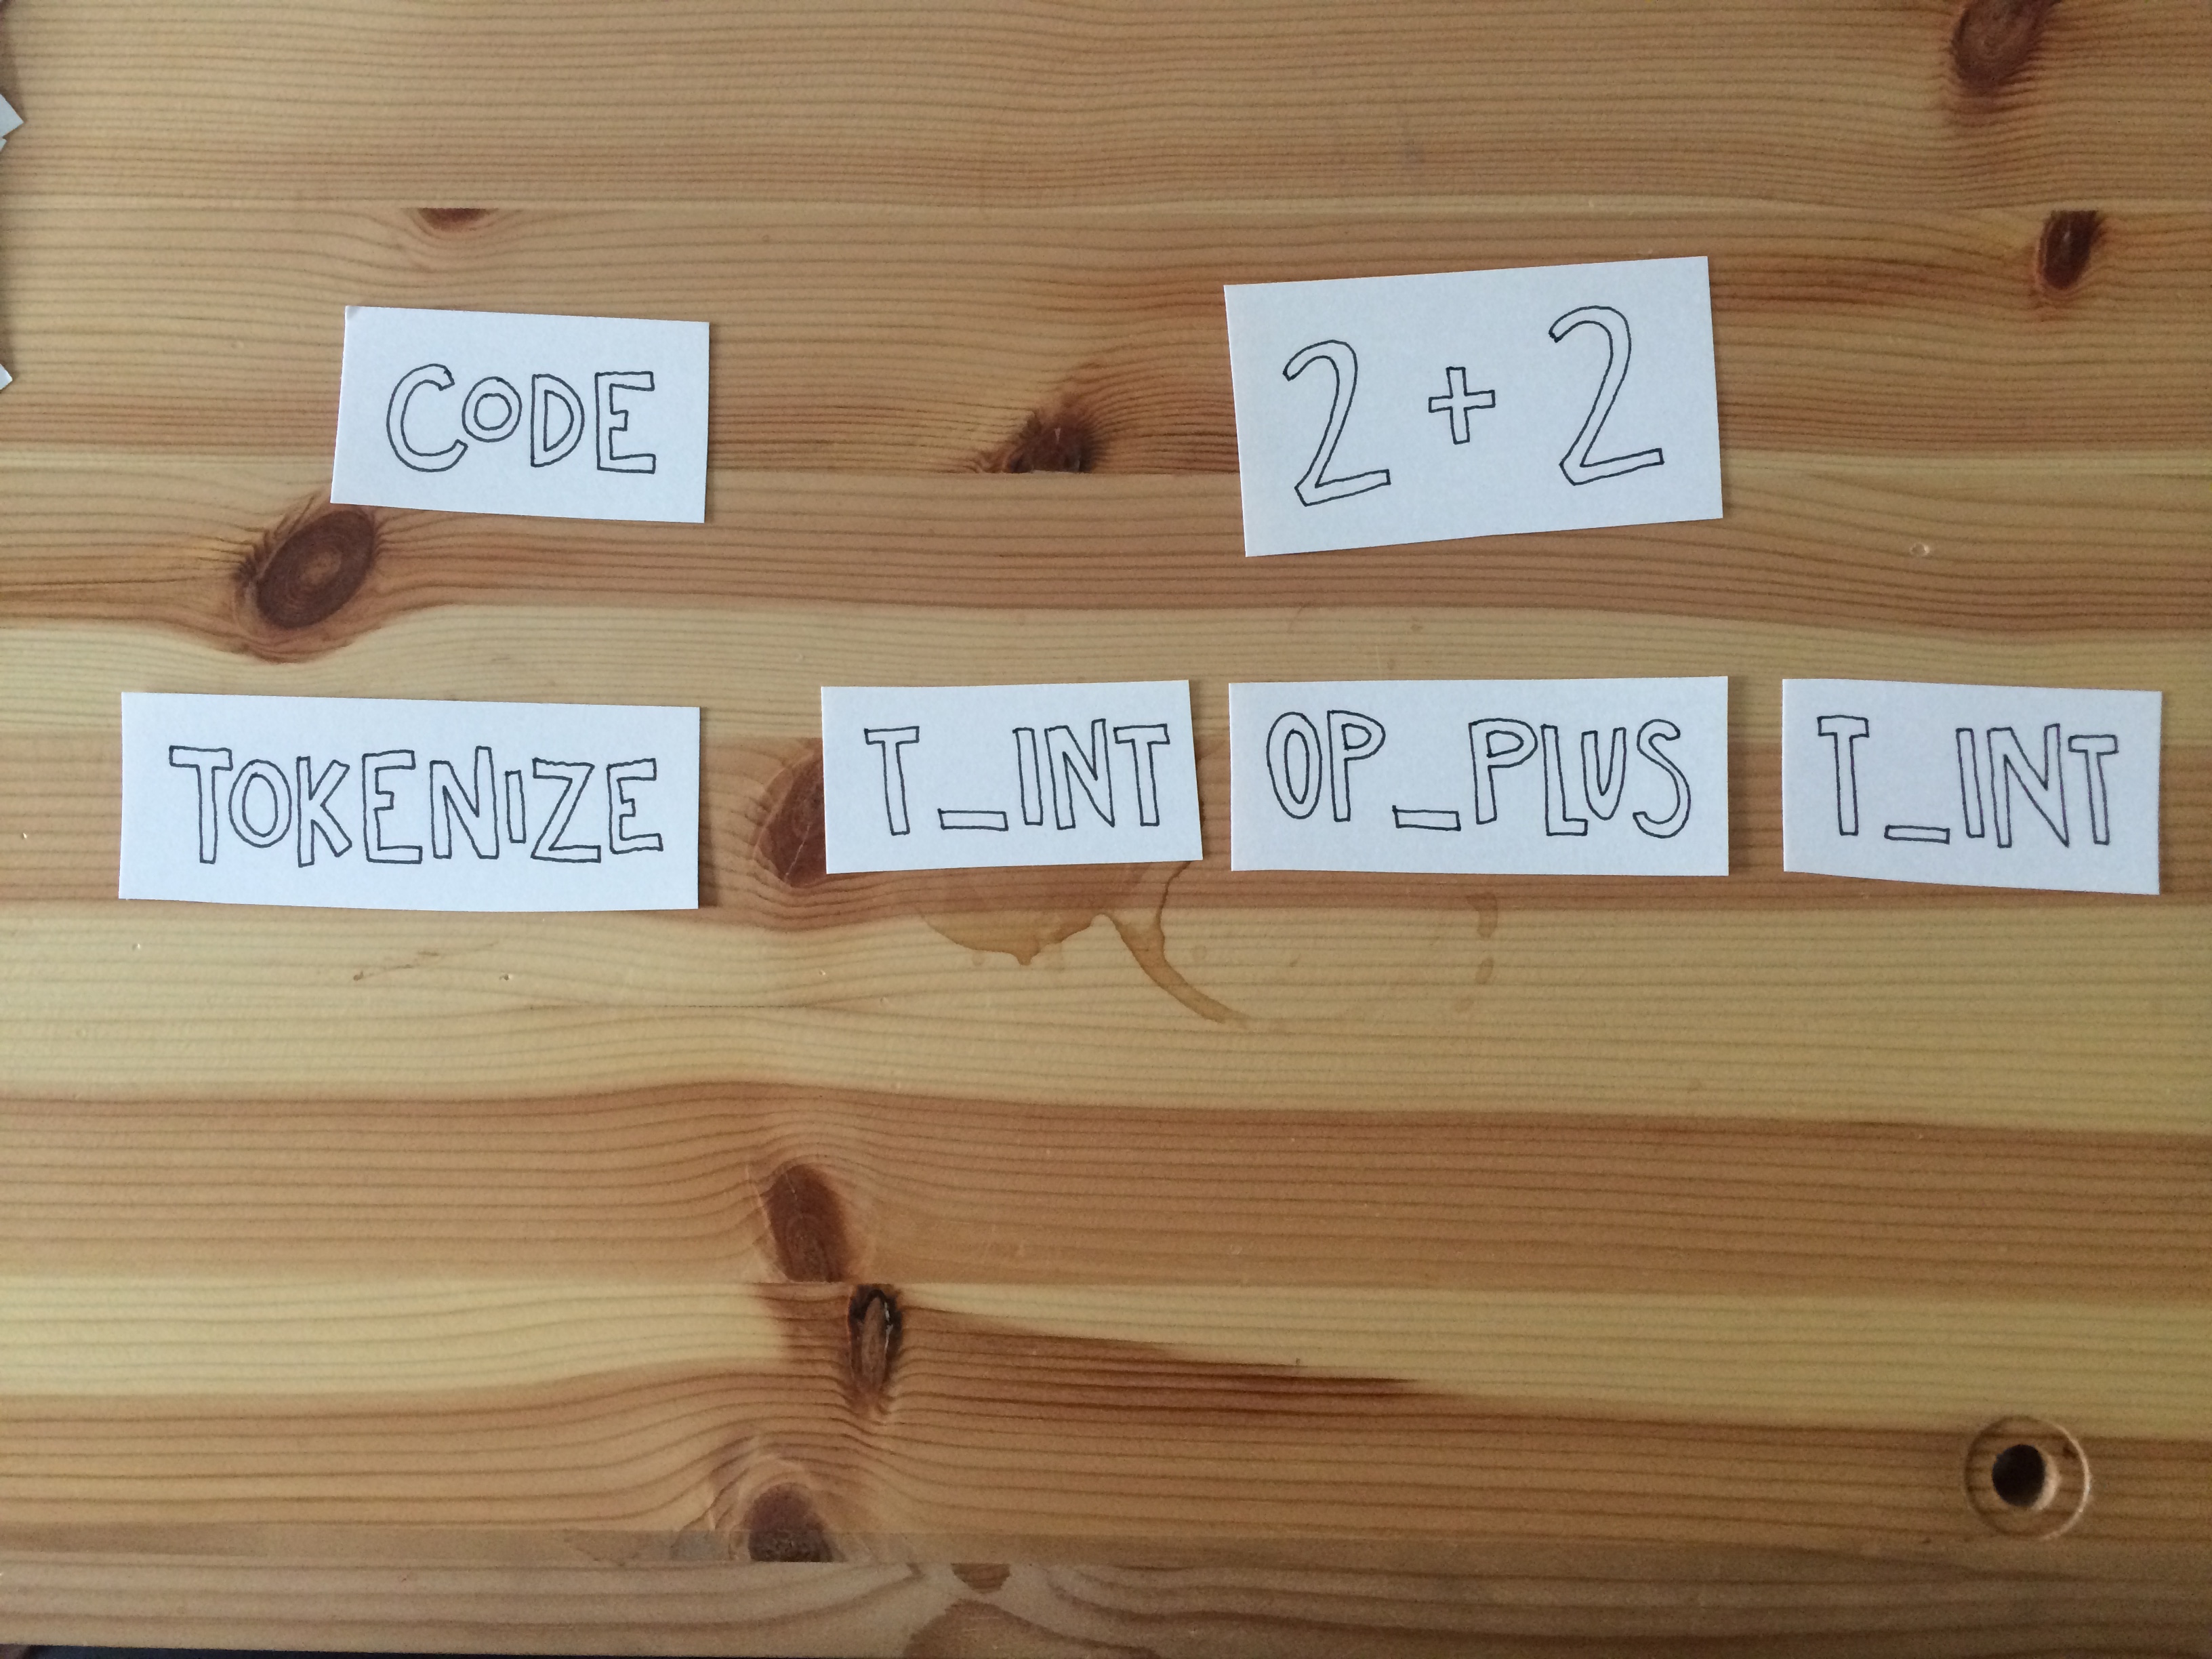 CODE 2 + 2
TOKENIZE T_INT OP_PLUS T_INT